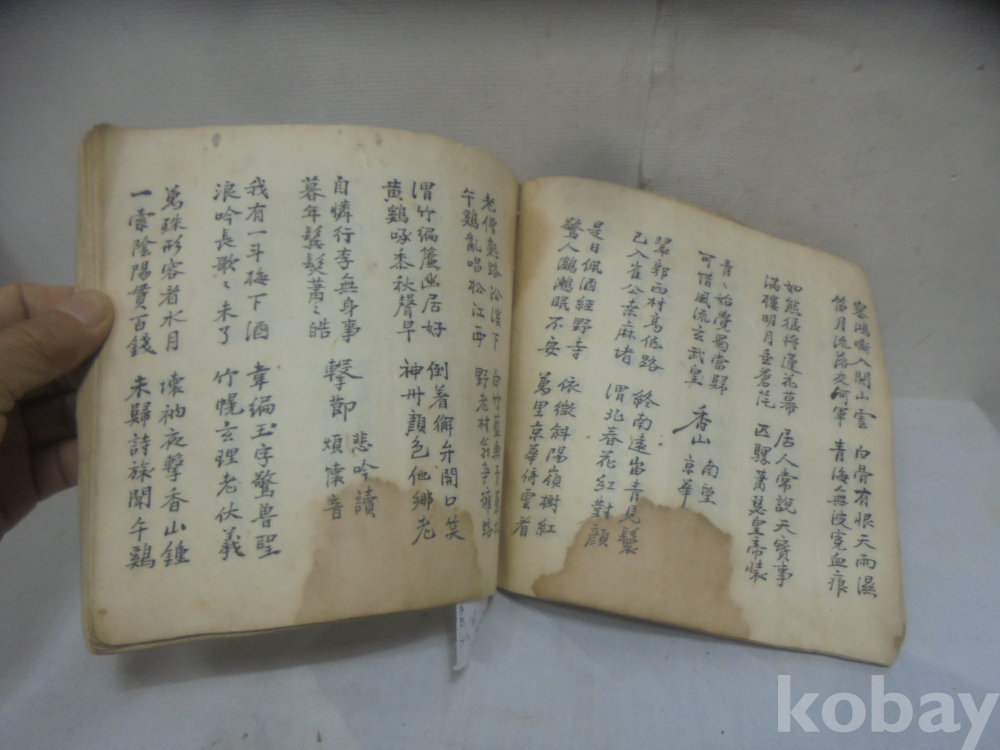 鴻嘶入關山雲 白骨有恨天雨濕
月流落文何軍 青海無波寃血痕
如熊猛將蓮花幕 居人常說天寶事
滿樓明月垂蒼茫 匹騾蕭瑟皇帝
青〻始覺蜀當歸
可惜風流玄武皇 香山 南望
京華
翠郭西村高低路 終南遠 青見鬢
人崔公桑麻堵 渭北春花紅對顏
是日佩酒經野寺 依微斜陽嶺樹紅
驚人 眠不安 萬里京華停雲看
老僧 路 溪下 白竹籃輿
午鷄亂唱松江西 野老村翁爭 路
渭竹編籬幽居好 倒着 弁開口笑
黄鷄啄黍秋聲早 神州顏色他鄉老
自憐行李無身事 擊節 悲吟讀
暮年鬓髮蕭〻皓 煩懷 音
我有一斗梅下酒 韋編玉字驚魯聖
浪吟長歌〻未了 竹幌玄理老伏義
萬殊形容者水月 壞衲夜擊香山鍾
一索陰陽費百錢 未歸詩旅聞午鷄
kobay